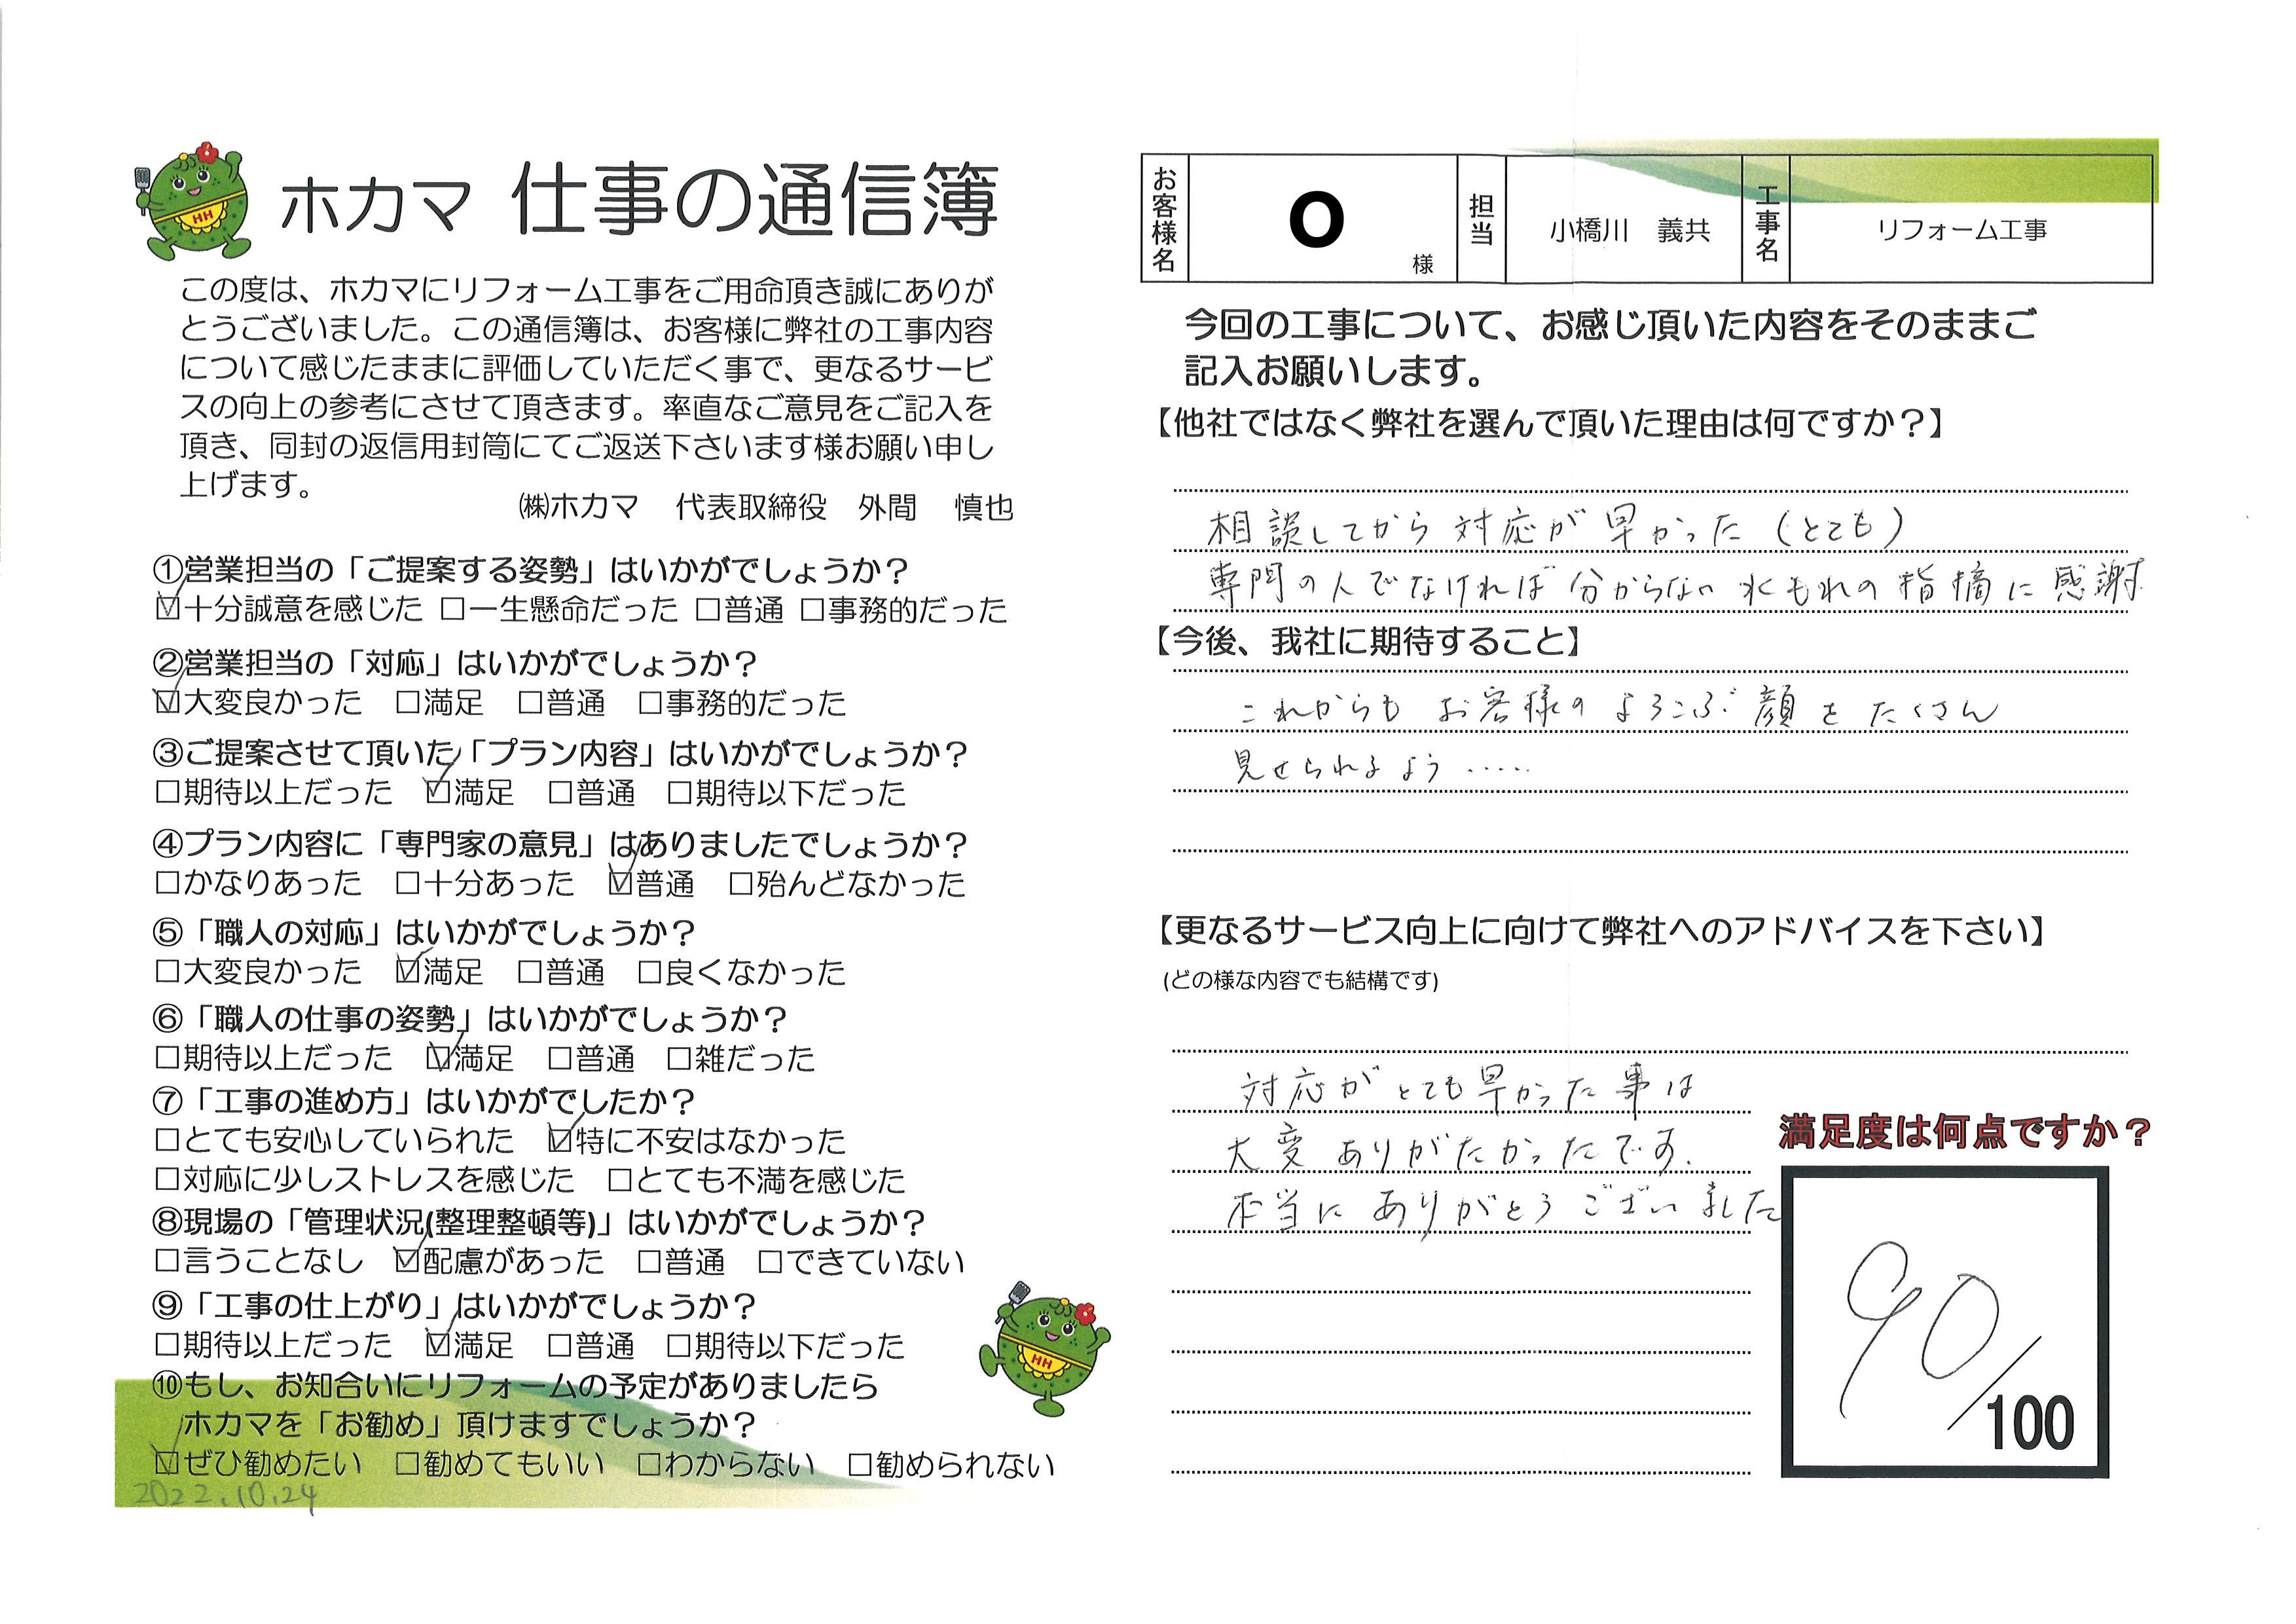 ホカマ 仕事の通信簿
この度は、ホカマにリフォーム工事をご用命頂き誠にありが
とうございました。この通信簿は、お客様に弊社の工事内容
について感じたままに評価していただく事で、更なるサービ
スの向上の参考にさせて頂きます。率直なご意見をご記入を
頂き、同封の返信用封筒にてご返送下さいます様お願い申し
上げます。
㈱ホカマ 代表取締役 外間 慎也
①営業担当の「ご提案する姿勢」はいかがでしょうか？
☑十分誠意を感じた □一生懸命だった □普通 □事務的だった
②営業担当の「対応」はいかがでしょうか？
☑大変良かった □満足 □普通 □事務的だった
③ご提案させて頂いた「プラン内容」はいかがでしょうか？
□期待以上だった ☑満足 □普通 □期待以下だった
④プラン内容に「専門家の意見」はありましたでしょうか？
□かなりあった □十分あった ☑普通 □殆んどなかった
⑤「職人の対応」はいかがでしょうか？
□大変良かった ☑満足 □普通 □良くなかった
⑥「職人の仕事の姿勢」はいかがでしょうか？
□期待以上だった ☑満足 □普通 □雑だった
⑦「工事の進め方」はいかがでしたか？
□とても安心していられた ☑特に不安はなかった
□対応に少しストレスを感じた □とても不満を感じた
⑧現場の「管理状況(整理整頓等)」はいかがでしょうか？
□言うことなし ☑配慮があった □普通 □できていない
⑨「工事の仕上がり」はいかがでしょうか？
□期待以上だった ☑満足 □普通 □期待以下だった
⑩もし、お知合いにリフォームの予定がありましたら
ホカマを「お勧め」頂けますでしょうか？
☑ぜひ勧めたい □勧めてもいい □わからない □勧められない
2022.10.24
HH
HH
お客様名 O 様 担当 小橋川 義共 工事名 リフォーム工事
今回の工事について、お感じ頂いた内容をそのままご
記入お願いします。
【他社ではなく弊社を選んで頂いた理由は何ですか？】
相談してから対応が早かった（とても）
専門の人でなければ分からない水もれの指摘に感謝
【今後、我社に期待すること】
これからもお客様のよろこぶ顔をたくさん
見せられるよう……
【更なるサービス向上に向けて弊社へのアドバイスを下さい】
(どの様な内容でも結構です)
対応がとても早かった事は
大変ありがたかったです.
本当にありがとうございました
満足度は何点ですか？
90/100